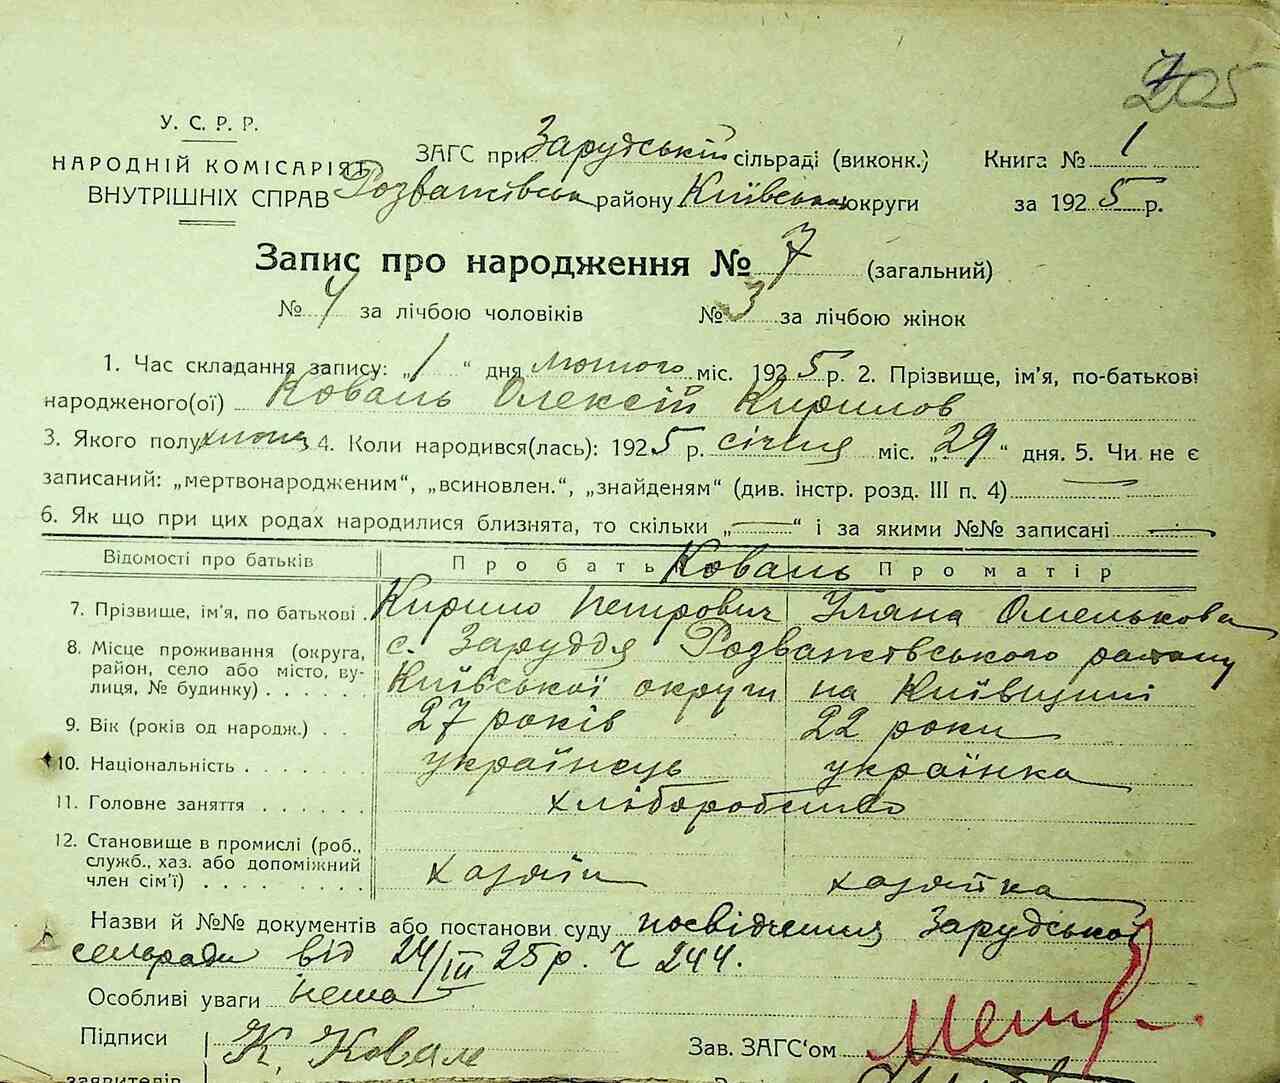 205
У. С. Р. Р.
НАРОДНІЙ КОМІСАРІЯТ
ВНУТРІШНІХ СПРАВ
ЗАГС при Зарудській сільраді (виконк.) Книга № 1
Розважівськ району Київської округи за 1925 р.
Запис про народження № 7 (загальний)
№ 4 за лічбою чоловіків № 3 за лічбою жінок
1. Час складання запису: „1“ дня лютого міс. 1925 р. 2. Прізвище, ім'я, по-батькові
народженого(ої) Коваль Олексій Кирилов
3. Якого полу хлопец 4. Коли народився(лась): 1925 р. січня міс. „29“ дня. 5. Чи не є
записаний: „мертвонародженим“, „всиновлен.“, „знайденям“ (див. інстр. розд. III п. 4) —
6. Як що при цих родах народилися близнята, то скільки „—“ і за якими №№ записані —
Відомості про батьків Про батька Про матір
Коваль
7. Прізвище, ім'я, по батькові Кирило Петрович Уляна Омелькова
8. Місце проживання (округа, район, село або місто, вулиця, № будинку) с. Заруддя Розважівського району
Київської округи на Київщині
9. Вік (років од народж.) 27 років 22 роки
10. Національність українець українка
11. Головне заняття хліборобство
12. Становище в промислі (роб., служб., хаз. або допоміжний член сім'ї) хазяїн хазяйка
Назви й №№ документів або постанови суду посвідчення Зарудської
сельради від 24/III 25 р. Ч 244.
Особливі уваги нема
Підписи К. Коваль Зав. ЗАГС'ом
заявителів